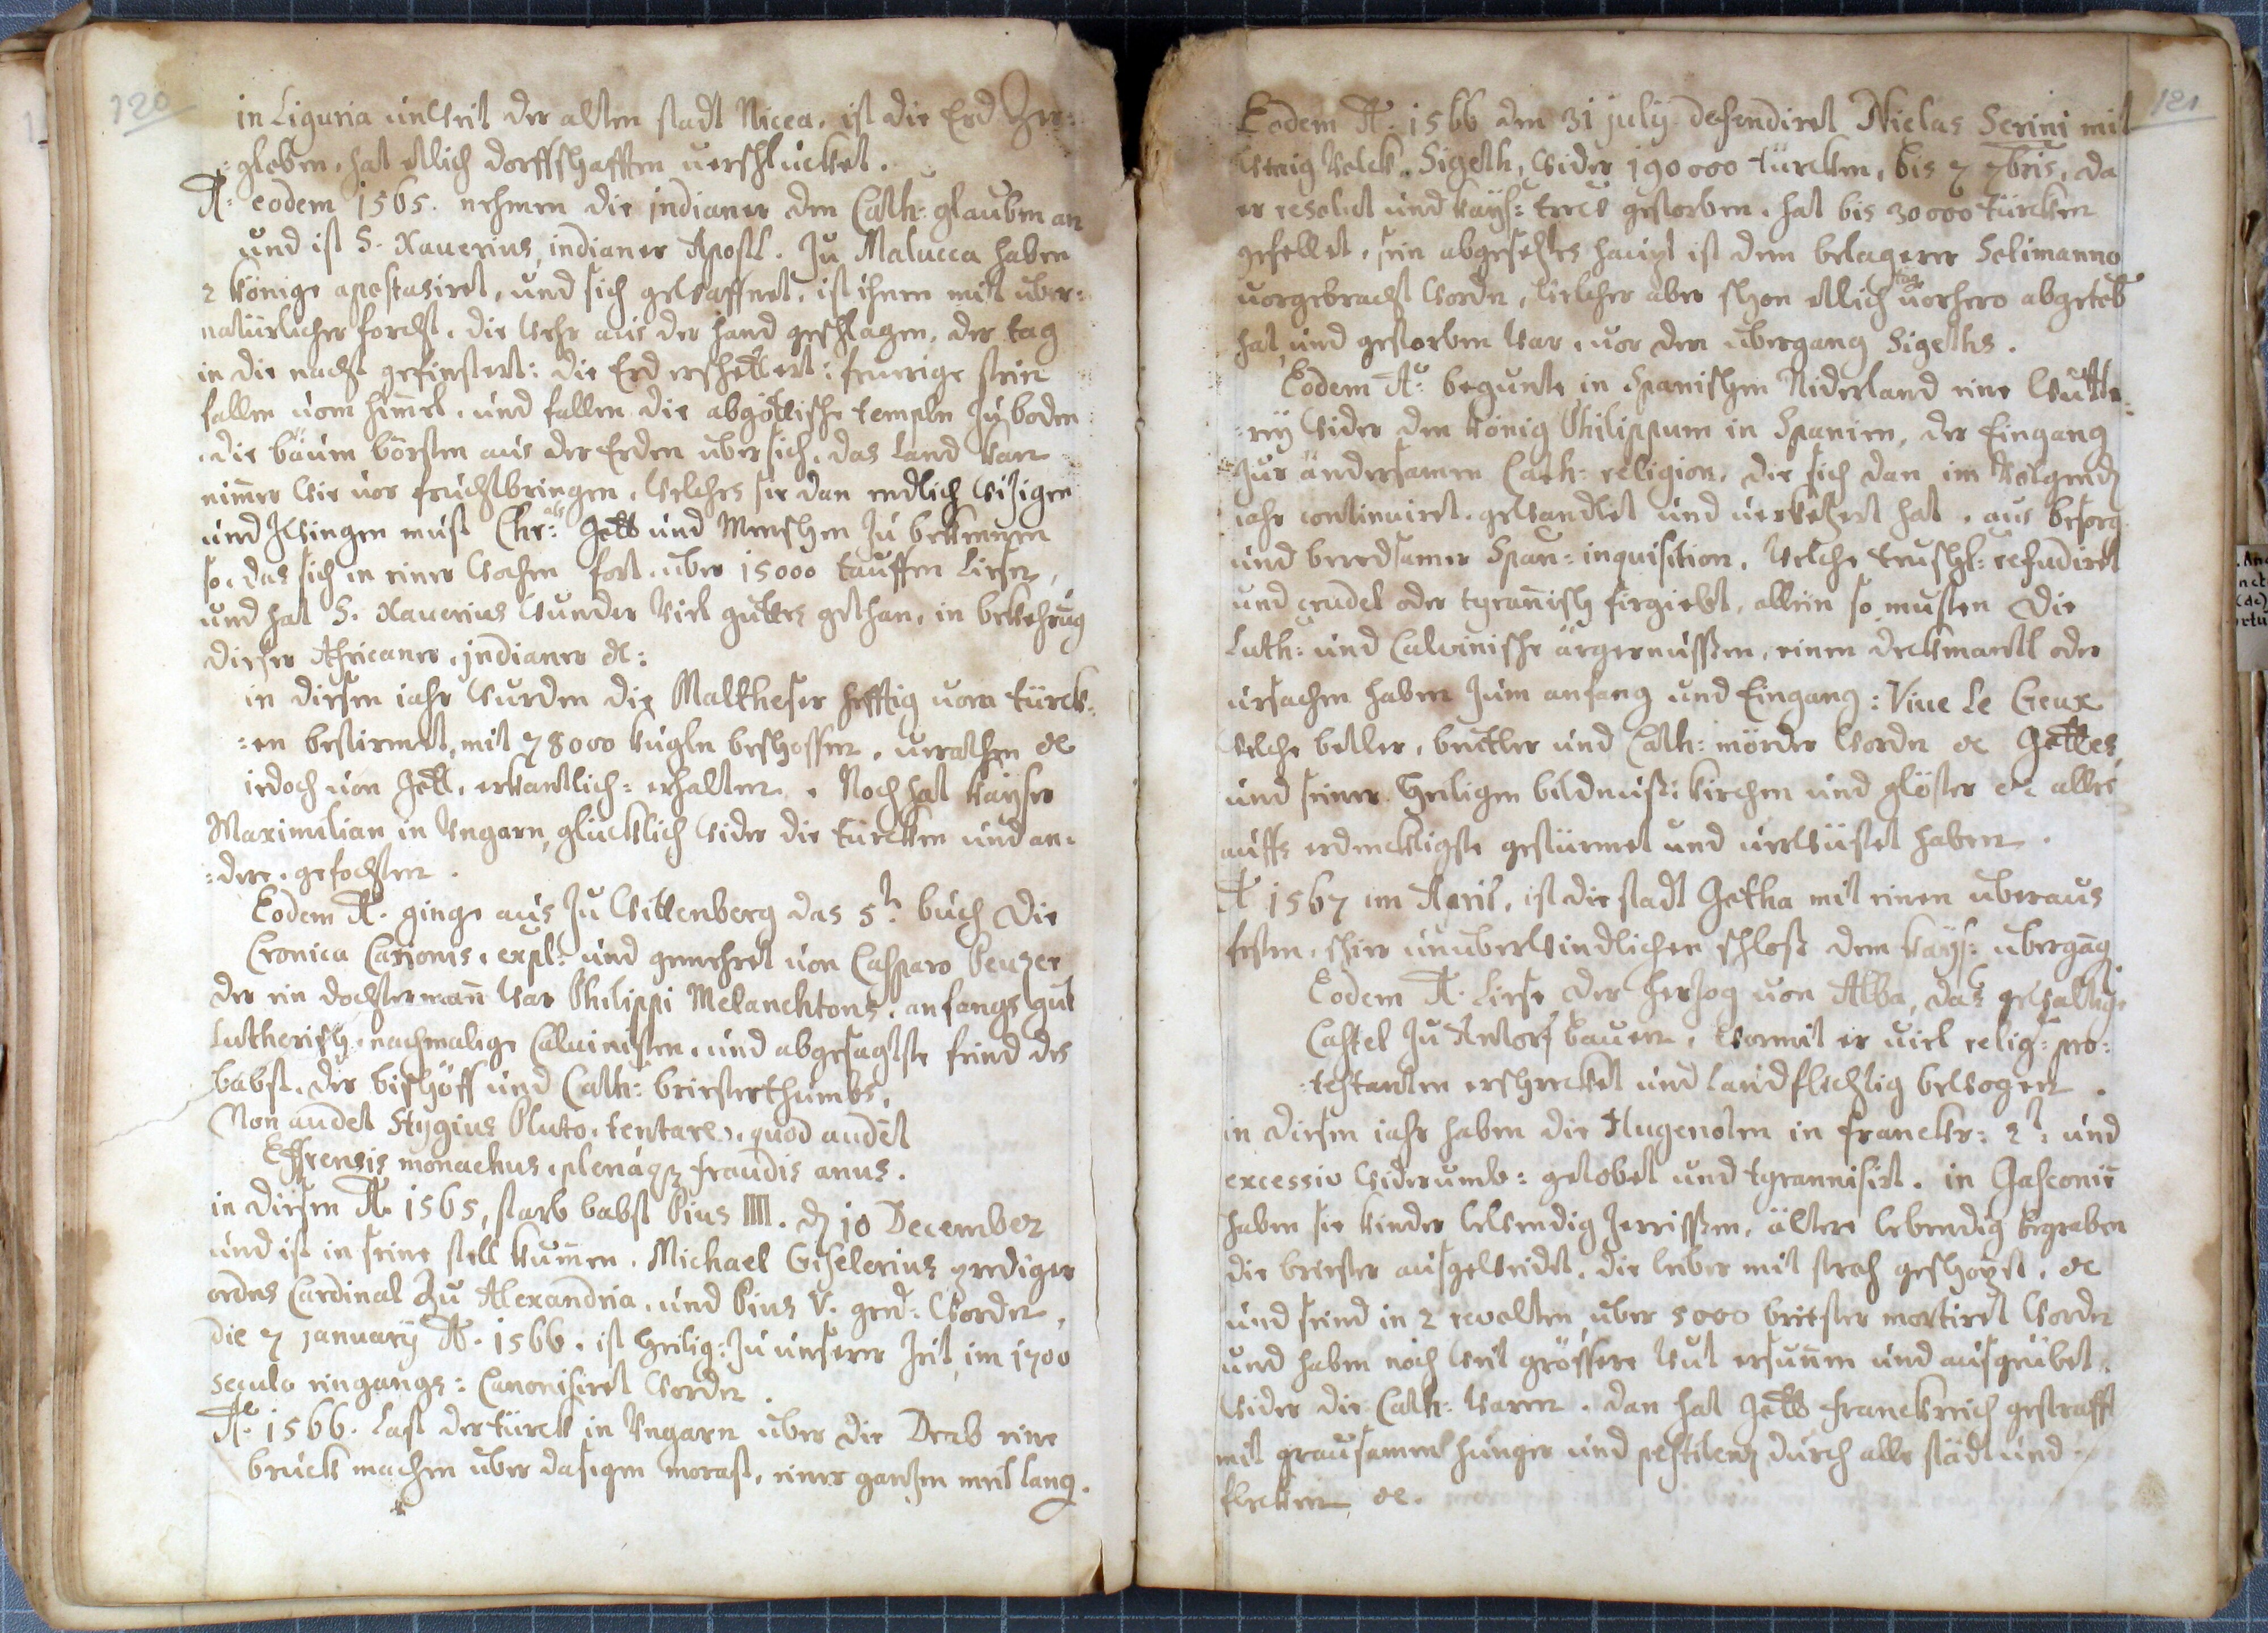 120
in Liguria unweit der alten stadt Nicea. ist die Erd Zer:
:globen, hat etlich dorffschafften verschlucket.
A: eodem 1565. nehmen die indianer den Cath: glauben an
und ist S. Xauerius, indianer Apostl. Zu Malucca haben
2 könige apostasiret, und sich gewaffnet, ist ihnen mit über:
natürlicher forcht. die wehr aus der hand geschlagen, der tag
in die nacht gefinstert: die Erd erschettert: feurige stein
fallen vom himel. und fallen die abgöttische templn zu boden
die bäum börsten aus der Erden über sich. das Land kan
nimer wie vor fruchtbringen. welches sie dan endlich
und zwingen must Chr: als Gott und Menschen zu bekennen
so. das sich in einer wochen fort. über 15000 tauffen liesen,
und hat S. Xauerius wunder viel guttes gethan, in bekehrung
dieser Africaner, indianer &:
in diesen iahr wurden die Maltheser hefftig vom türck:
:en bestirmet, mit 78000 kugln beschossen. &
iedoch von Gott, erkantlich: erhalten. Noch hat kayser
Maximilian in Ungarn, glücklich wider die türcken und an:
:dere. gefochten.
Eodem A. ginge aus Zu Wittenberg das 5t. buch die
Cronica Carionis. expl: und gemehret von Casparo Peuzer
der ein dochtermann war Philippi Melanchtons. anfangs gut
Lutherisch. nachmalige Calvinisten. und abgesagtste feind des
babst. der bischöff und Cath: briesterthumbs.
Non audet Stygius Pluto. tentare, quod audet
Effrenis monachus. plenaq3 fraudis anus.
in diesen A. 1565, starb babst Pius IIII. d 10 December
und ist in seine stell kumen. Michael Giselerius prediger
ordens Cardinal Zu Alexandria. und Pius V. gend: worden,
die 7 january A. 1566. ist heilig: Zu unserer Zeit, im 1700
seculo eingangs: Canonisiret worden.
Ao 1566. Last der türck in Ungarn über die Drab eine
bruck machen über dasigen morast, einer gantzen meil lang.
121
Eodem A. 1566 den 31 july defendiret Niclas Serini mit
wenig volck. Sigeth, wider 190000 türcken, bis 7 7bris, da
er resolut und kays: treu gestorben. hat bis 30000 türcken
gefellet. sein abgesetztes haupt ist dem belagerer Solimanno
vorgebracht worden, welcher aber schon etlich tag vorhero abgeleb
hat, und gestorben war. vor den übergang Sigeths.
Eodem Ao: begunte in Spanischen Niderland eine wütte:
:rey wider den könig Philippum in Spanien, der Eingang
zur Cath: religion. die sich dan im volgend
iahr continuiret. gewandlet und verketzert hat. aus besorg
und beredsamer Span: inquisition. welche refudiret
und crudel oder tyrannisch firgiebt, allein so musten die
Luth: und Calvinische ärgernussen, einen deckmantl oder
ursachen haben zum anfang und Eingang: Viue Le Geux
welche bettler, beutler und Cath: mörder worden & Gottes,
und seiner Heiligen bildnuss. kirchen und glöster & alles
auffs erdencklichste gestürmet und verwüstet haben.
A 1567 im April, ist die stadt Gotha mit einen überaus
festen, schier unüberwindlichen schloss dem kays: übergang
Eodem A. liese der Hertzog von Alba, das gewaltige
Castel zu Antorf bauen, wormit er viel relig: pro:
:testanten erschrecket und landflichtig bewogen.
in diesen iahr haben die Hugenoten in franckr: 2t: und
excessiv widerumb: getobet und tyrannisirt. in Gasconie
haben sie kinder lebendig zerrissen, ältere lebendig begraben
die briester ausgeweidet, die leiber mit stroh geschopst. &
und seind in 2 revolten, über 5000 briester martiret worden
und haben noch weit grössere wut ersunen und ausgeübet,
wider die Cath: waren. dan hat Gott franckreich gestrafft
mit grausamen hunger und pestilenz durch alle städt und
flecken &.